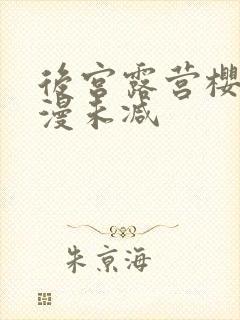 後宫露营樱
漫未减
朱京海